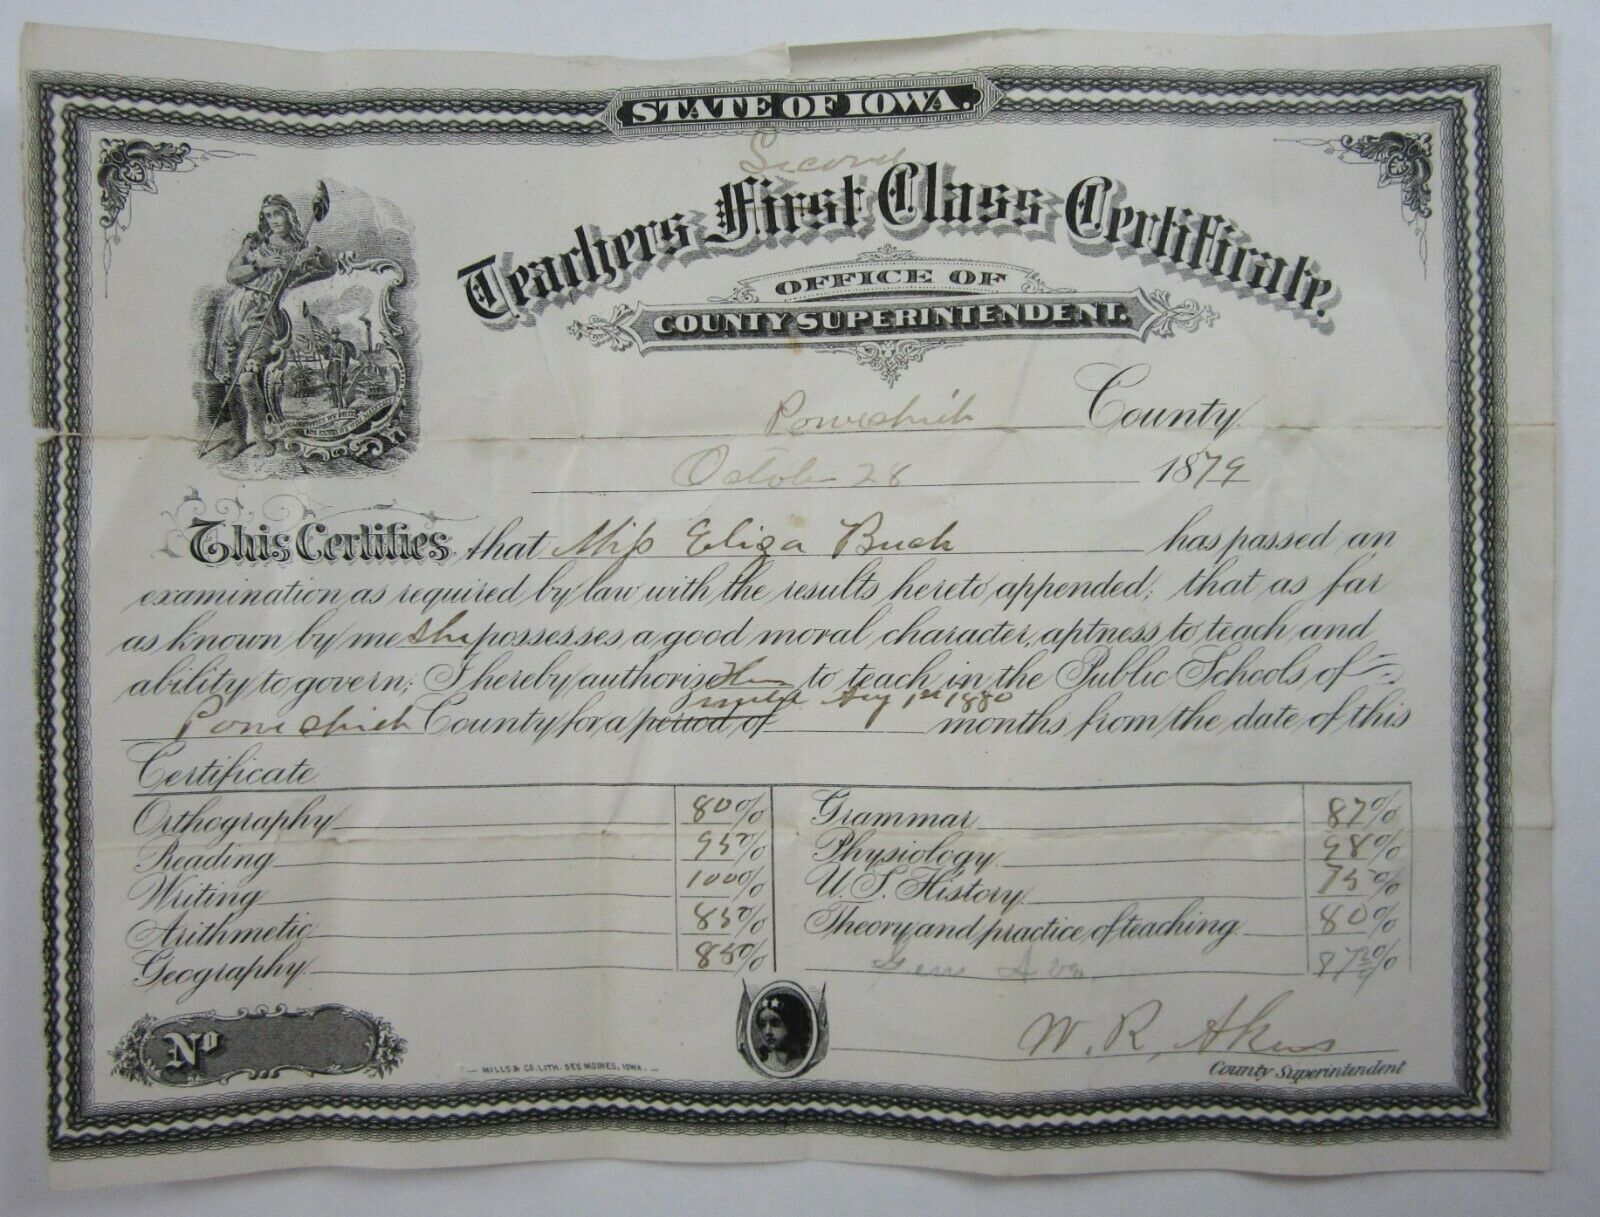 STATE OF IOWA.
Second
Teachers First Class Certificate.
OFFICE OF
COUNTY SUPERINTENDENT.
Poweshiek County
October 28 1879
This Certifies that Miss Eliza Buck has passed an
examination as required by law with the results hereto appended; that as far
as known by me she possesses a good moral character, aptness to teach and
ability to govern; I hereby authorize her to teach in the Public Schools of
until Aug 1st 1880
Poweshiek County for a period of months from the date of this
Certificate.
Orthography 80%
Reading 95%
Writing 100%
Arithmetic 85%
Geography 85%
Grammar 87%
Physiology 98%
U.S. History 75%
Theory and practice of teaching 80%
Gen Av.
No
MILLS & CO. LITH. DES MOINES, IOWA.
W. R. Akers
County Superintendent